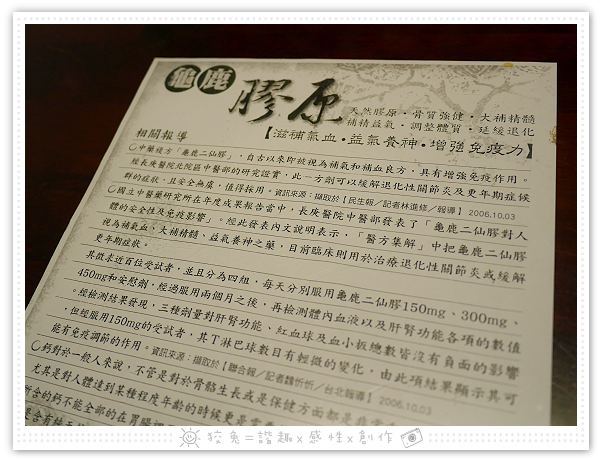 龜鹿
膠原
天然膠原·骨質強健·大補精髓
補精益氣·調整體質·延緩退化
【滋補氣血·益氣養神·增強免疫力】
相關報導
○中藥複方「龜鹿二仙膠」，自古以來即被視為補氣和補血良方，具有增強免疫作用。
經長庚醫院北院區中醫部的研究證實，此一方劑可以緩解退化性關節炎及更年期症候
群的症狀，且安全無虞，值得採用。資訊來源：擷取於【民生報／記者林進修／報導】2006.10.03
○國立中醫藥研究所在年度成果報告當中，長庚醫院中醫部發表了「龜鹿二仙膠對人
體的安全性及免疫影響」。經此發表內文說明表示，「醫方集解」中把龜鹿二仙膠
視為補氣血、大補精髓、益氣養神之藥，目前臨床則用於治療退化性關節炎或緩解
更年期症狀。
其徵求近百位受試者，並且分為四組，每天分別服用龜鹿二仙膠150mg、300mg、
450mg和安慰劑，經過服用兩個月之後，再檢測體內血液以及肝腎功能各項的數值
。經檢測結果發現，三種劑量對肝腎功能、紅血球及血小板總數皆沒有負面的影響
，但經服用150mg的受試者，其T淋巴球數目有輕微的變化，由此項結果顯示其可
能有免疫調節的作用。資訊來源：擷取於【聯合報／記者魏忻忻／台北報導】2006.10.03
○鈣對於一般人來說，不管是對於骨骼生長或是保健方面都是非常
尤其是對人體達到某種程度年齡的時候更是需要
所含的鈣不能全部的在胃腸
狡兔=諧趣x感性x創作